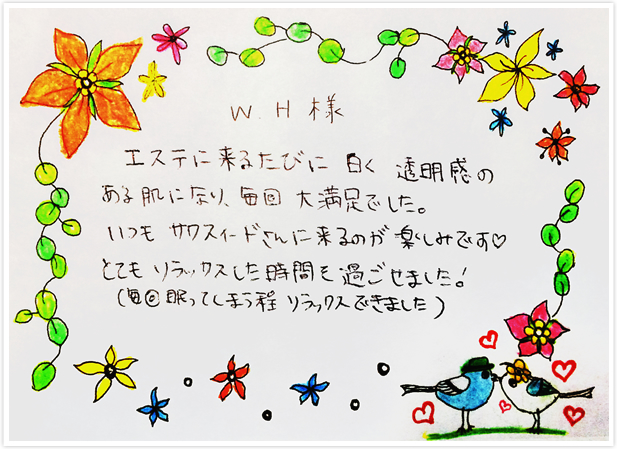 W.H様
エステに来るたびに 白く 透明感の
ある肌になり、毎回 大満足でした。
いつも サワスイードさんに来るのが 楽しみです♡
とても リラックスした時間を過ごせました!
(毎回眠ってしまう程 リラックスできました)